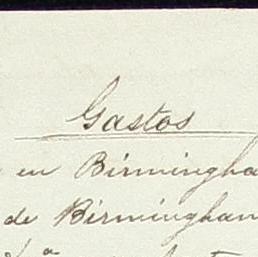 Gastos
en Birmingha
de Birmingham